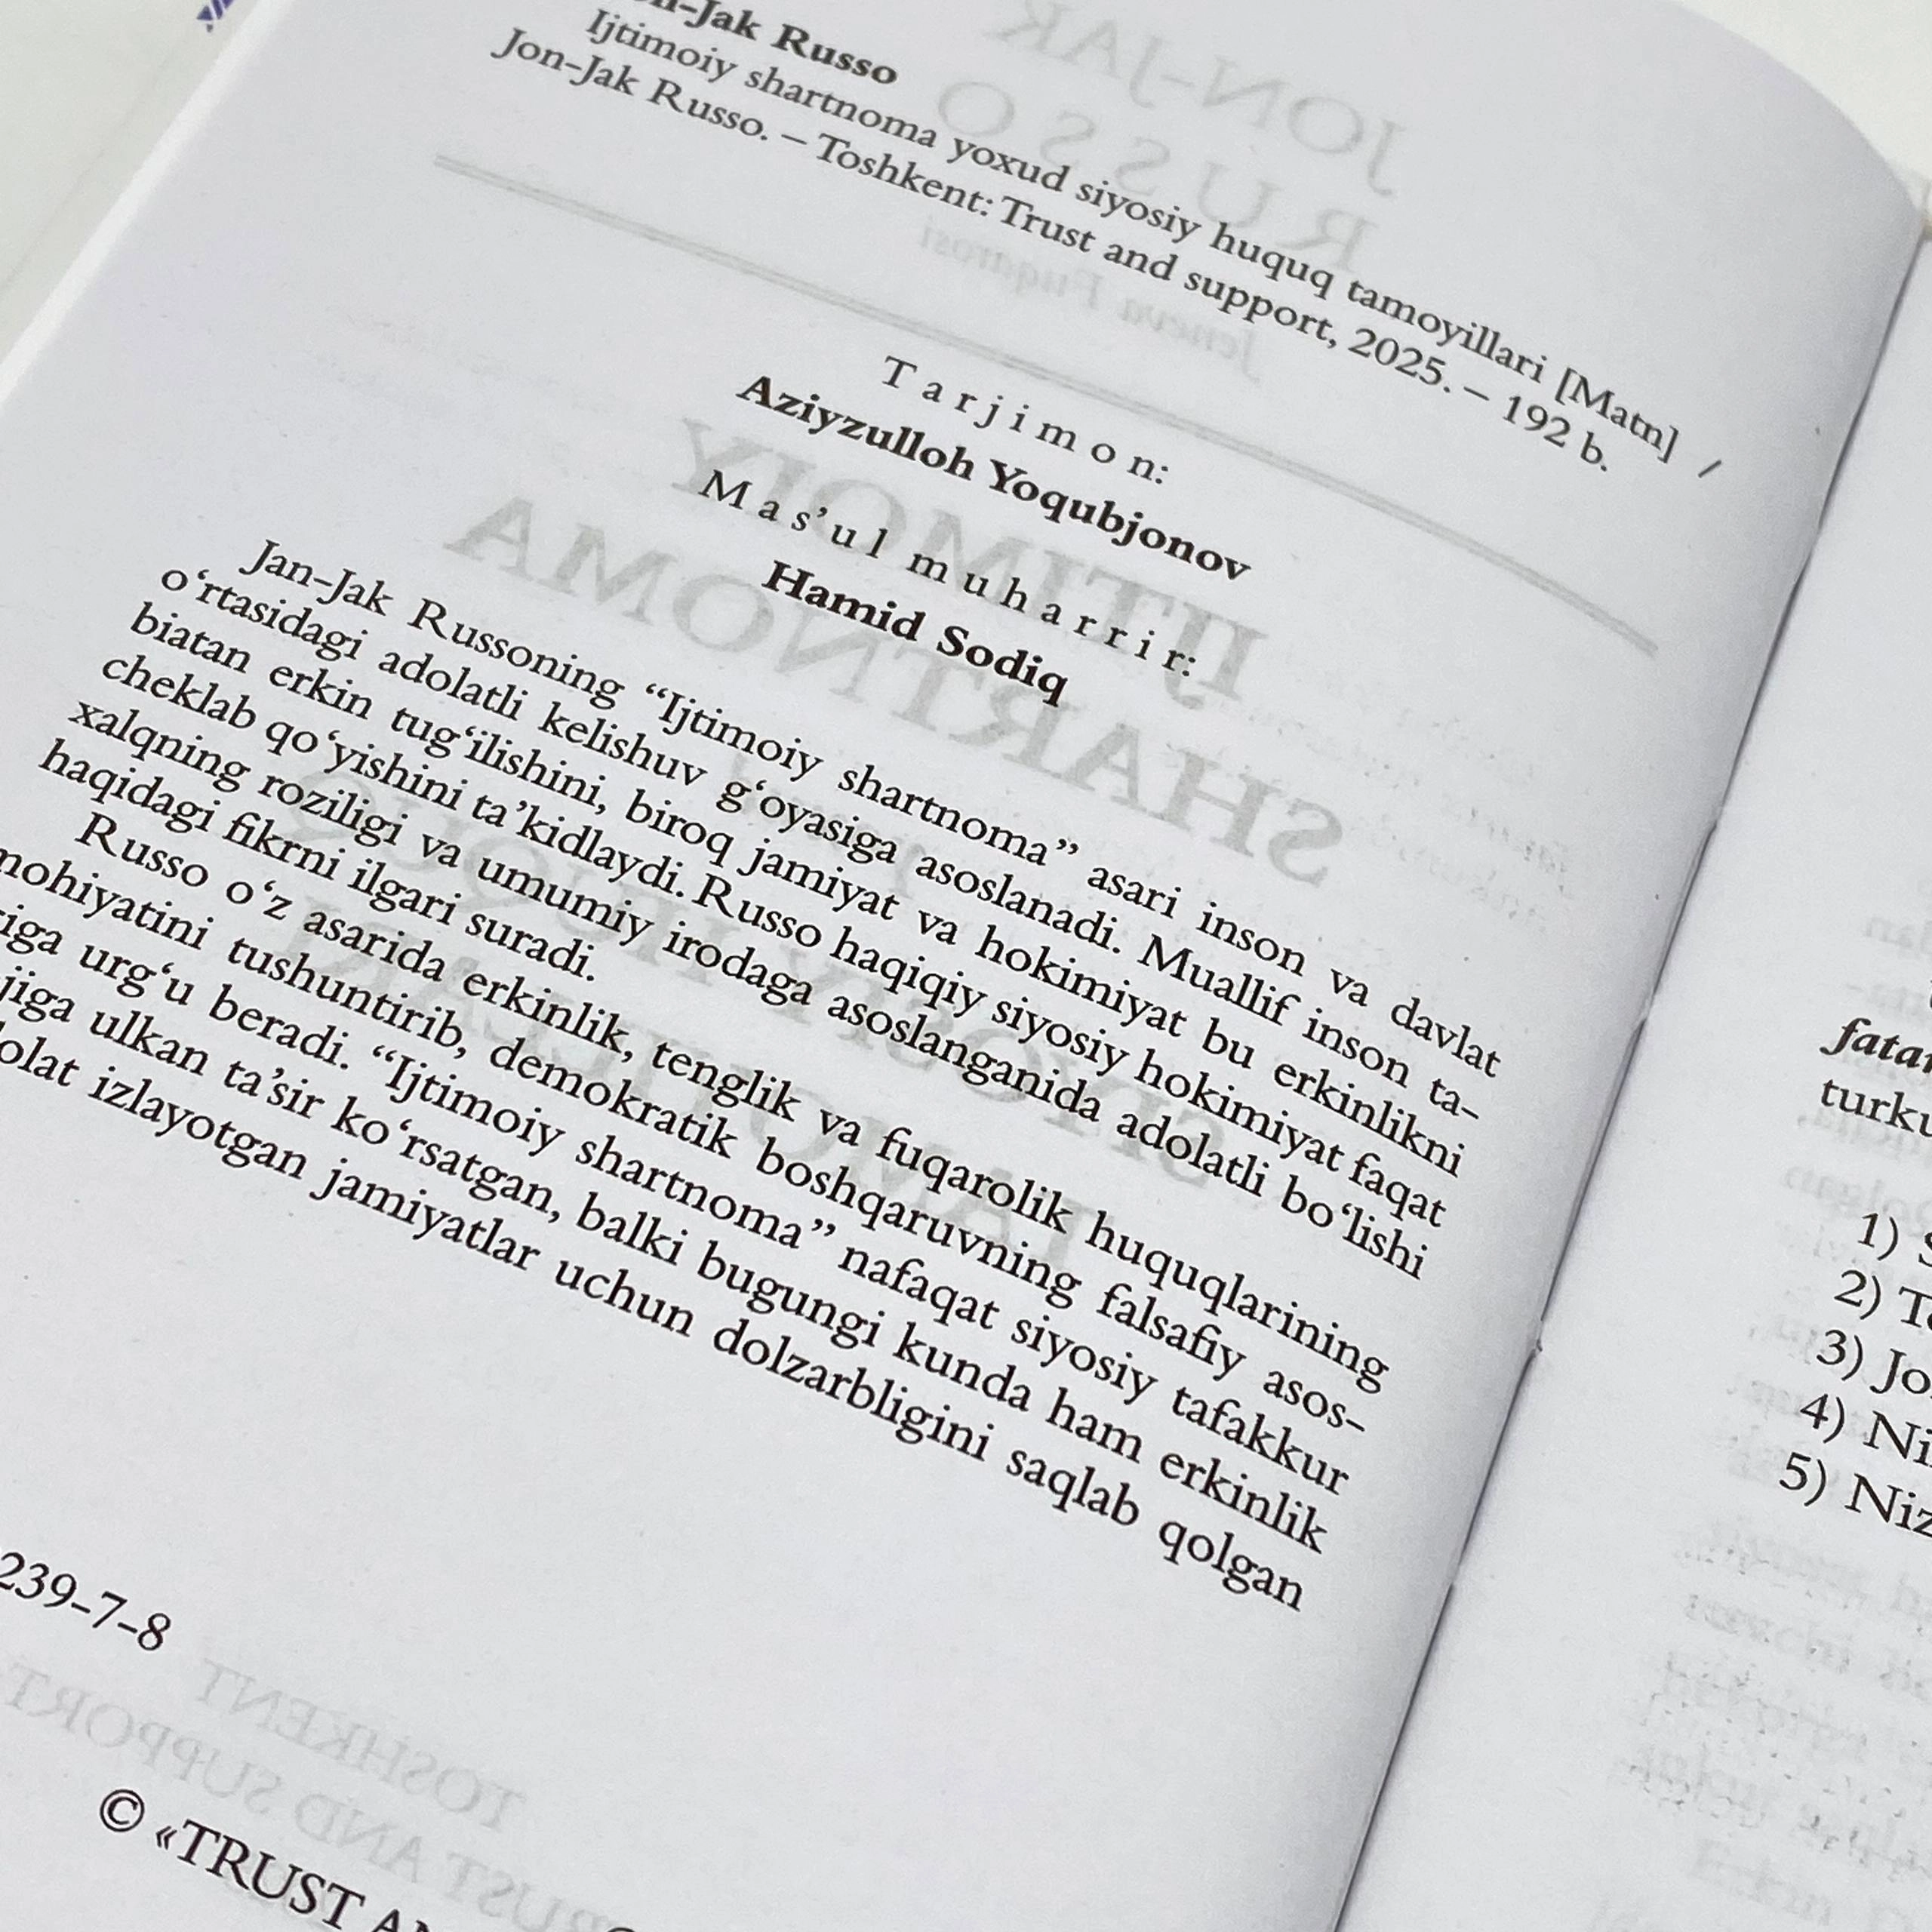 Jon-Jak Russo
Ijtimoiy shartnoma yoxud siyosiy huquq tamoyillari [Matn] /
Jon-Jak Russo. – Toshkent: Trust and support, 2025. – 192 b.
Tarjimon:
Aziyzulloh Yoqubjonov
Mas’ul muharrir:
Hamid Sodiq
Jan-Jak Russoning “Ijtimoiy shartnoma” asari inson va davlat
o‘rtasidagi adolatli kelishuv g‘oyasiga asoslanadi. Muallif inson ta-
biatan erkin tug‘ilishini, biroq jamiyat va hokimiyat bu erkinlikni
cheklab qo‘yishini ta’kidlaydi. Russo haqiqiy siyosiy hokimiyat faqat
xalqning roziligi va umumiy irodaga asoslanganida adolatli bo‘lishi
haqidagi fikrni ilgari suradi.
Russo o‘z asarida erkinlik, tenglik va fuqarolik huquqlarining
mohiyatini tushuntirib, demokratik boshqaruvning falsafiy asos-
urg‘u beradi. “Ijtimoiy shartnoma” nafaqat siyosiy tafakkur
ulkan ta’sir ko‘rsatgan, balki bugungi kunda ham erkinlik
izlayotgan jamiyatlar uchun dolzarbligini saqlab qolgan
239-7-8
© «TRUST
turku
1)
2)
3)
4)
5)